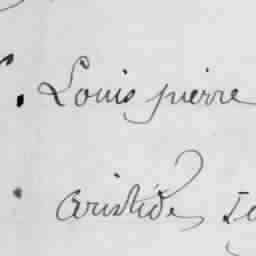 Louis pierre
aristide